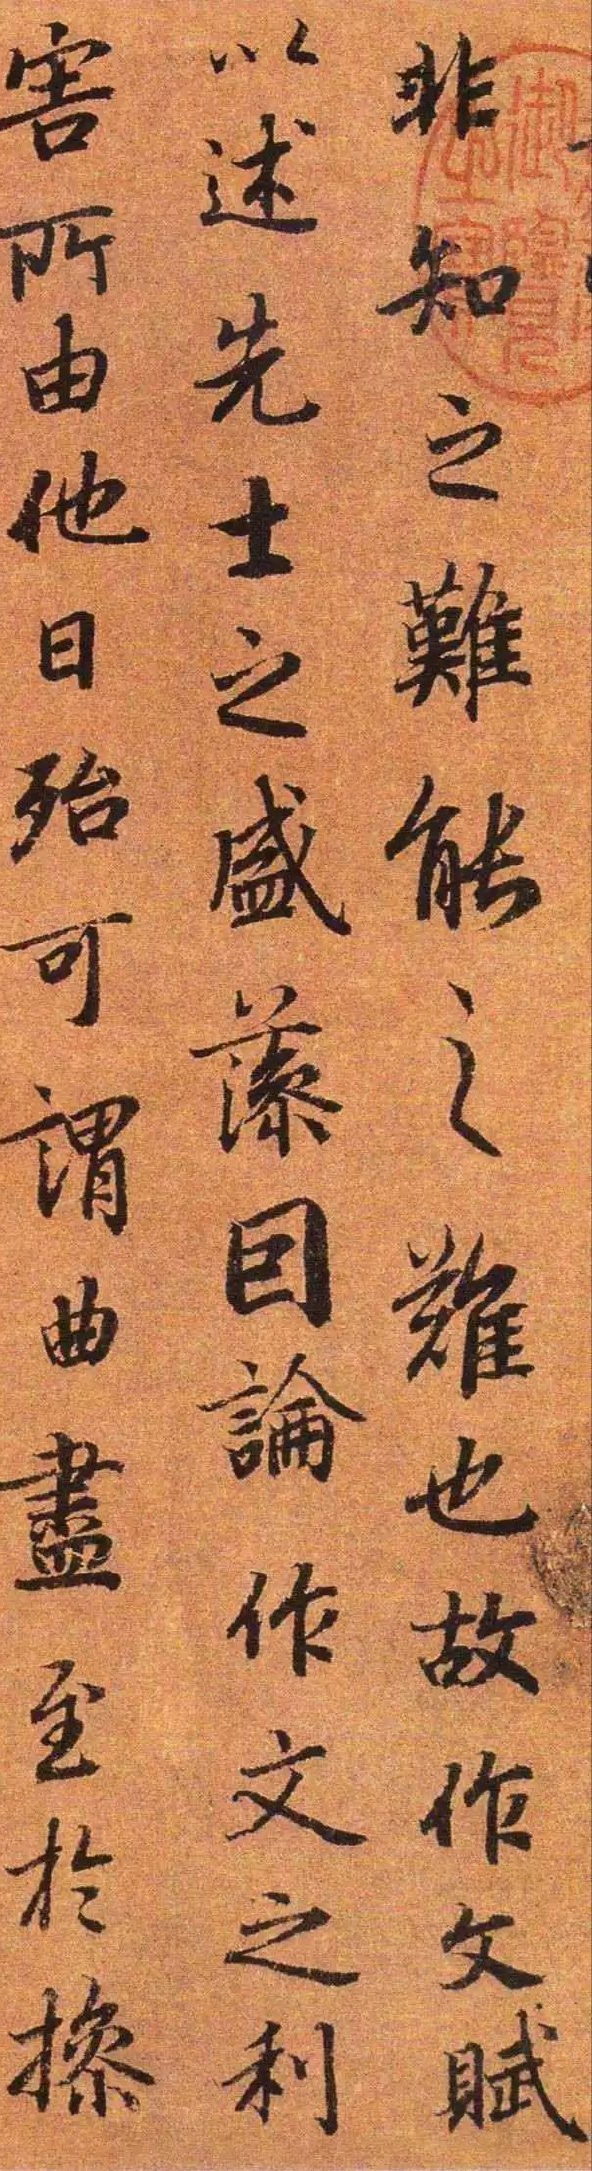 非知之難能之難也故作文賦
以述先士之盛藻因論作文之利
害所由他日殆可謂曲盡至於操